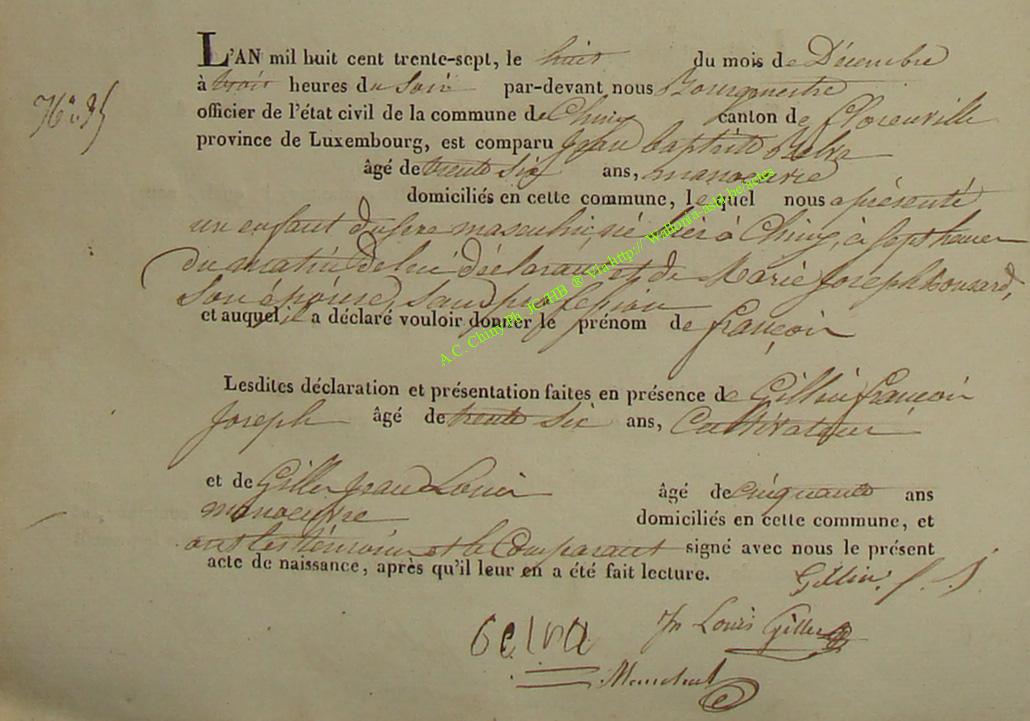 N° 35
L'AN mil huit cent trente-sept, le huit du mois de Décembre
à trois heures du Soir par-devant nous Bourgmestre
officier de l'état civil de la commune de Chiny canton de florenville
province de Luxembourg, est comparu Jean baptiste Gelva
âgé de trente six ans, manoeuvre
domiciliés en cette commune, lequel nous a présenté
un enfant du sexe masculin, né hier à Chiny, à sept heures
du matin de lui déclarant et de Marie Joseph housard,
Son épouse, Sans profession
et auquel il a déclaré vouloir donner le prénom de françois
Lesdites déclaration et présentation faites en présence de Gillin françois
Joseph âgé de trente six ans, Cultivateur
et de Giller Jean Louis âgé de cinquante ans
manoeuvre domiciliés en cette commune, et
ont les témoins et le Comparant signé avec nous le présent
acte de naissance, après qu'il leur en a été fait lecture.
Gillin. f. J
Gelva Jn Louis Giller
A.C. Chiny Ph. JC/HB ® Via http:// Wallonia-asbl.be/actes